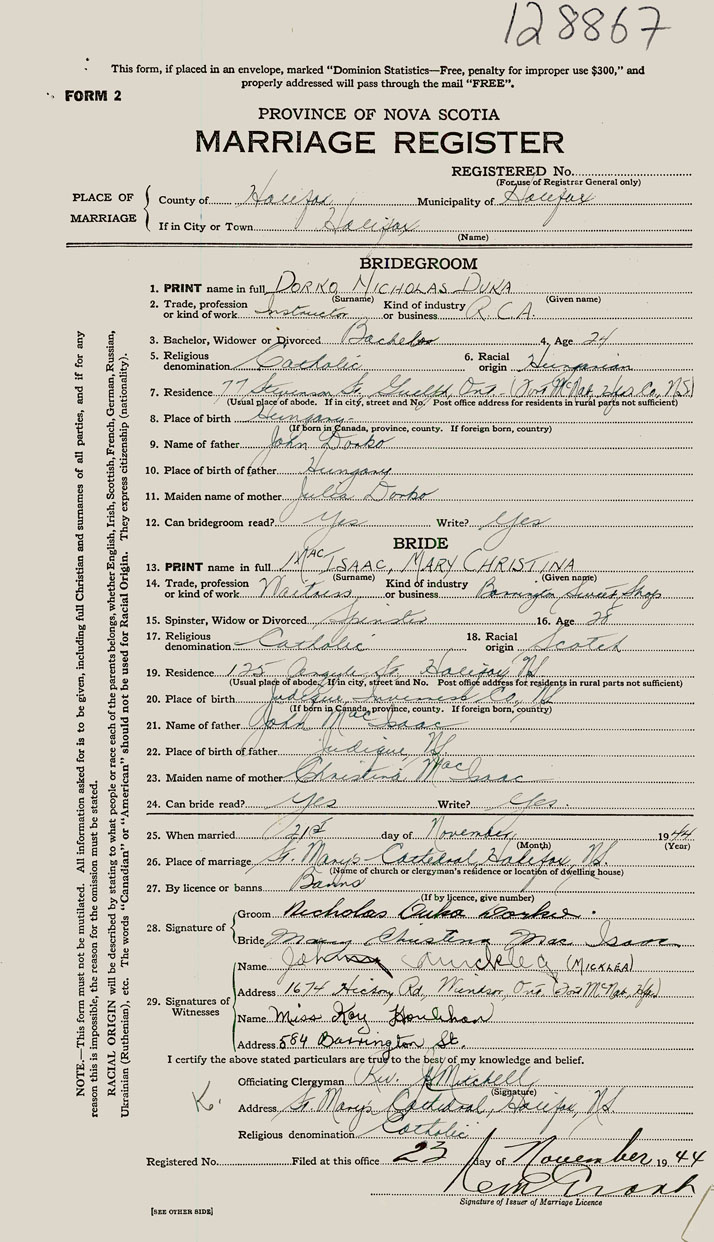 128867
This form, if placed in an envelope, marked "Dominion Statistics—Free, penalty for improper use $300," and
properly addressed will pass through the mail "FREE".
FORM 2
PROVINCE OF NOVA SCOTIA
MARRIAGE REGISTER
REGISTERED No.
(For use of Registrar General only)
PLACE OF MARRIAGE
County of Halifax Municipality of Halifax
If in City or Town Halifax
(Name)
BRIDEGROOM
1. PRINT name in full DORKO NICHOLAS DUKA
(Surname) (Given name)
2. Trade, profession or kind of work Instructor Kind of industry or business R.C.A.
3. Bachelor, Widower or Divorced Bachelor 4. Age 24
5. Religious denomination Catholic 6. Racial origin Hungarian
7. Residence 77 Stevenson St. Guelph, Ont. (Fort McNab, Hfx Co, N.S.)
(Usual place of abode. If in city, street and No. Post office address for residents in rural parts not sufficient)
8. Place of birth Hungary
(If born in Canada, province, county. If foreign born, country)
9. Name of father John Dorko
10. Place of birth of father Hungary
11. Maiden name of mother Julia Dorko
12. Can bridegroom read? Yes Write? Yes
BRIDE
13. PRINT name in full MACISAAC, MARY CHRISTINA
(Surname) (Given name)
14. Trade, profession or kind of work Waitress Kind of industry or business Barrington Sweet Shop
15. Spinster, Widow or Divorced Spinster 16. Age 28
17. Religious denomination Catholic 18. Racial origin Scotch
19. Residence 125 Argyle St. Halifax, NS
(Usual place of abode. If in city, street and No. Post office address for residents in rural parts not sufficient)
20. Place of birth Judique, Inverness Co, NS
(If born in Canada, province, county. If foreign born, country)
21. Name of father John MacIsaac
22. Place of birth of father Judique, NS.
23. Maiden name of mother Christina MacIsaac
24. Can bride read? Yes Write? Yes.
25. When married 21st day of November 1944
(Month) (Year)
26. Place of marriage St. Mary's Cathedral, Halifax, N.S.
(Name of church or clergyman's residence or location of dwelling house)
27. By licence or banns Banns
(If by licence, give number)
28. Signature of
Groom Nicholas Duka Dorko.
Bride Mary Christina Mac Isaac
29. Signatures of Witnesses
Name John Micklea (MICKLEA)
Address 1674 Hickory Rd, Windsor, Ont (Fort McNab, Hfx)
Name Miss Kay Houlihan
Address 584 Barrington St.
I certify the above stated particulars are true to the best of my knowledge and belief.
Officiating Clergyman Rev.
(Signature)
K.
Address St. Mary's Cathedral, Halifax, NS
Religious denomination Catholic
Registered No. Filed at this office 23 day of November 1944
Signature of Issuer of Marriage Licence
[SEE OTHER SIDE]
NOTE.—This form must not be mutilated. All information asked for is to be given, including full Christian and surnames of all parties, and if for any
reason this is impossible, the reason for the omission must be stated.
RACIAL ORIGIN will be described by stating to what people or race each of the parents belongs, whether English, Irish, Scottish, French, German, Russian,
Ukrainian (Ruthenian), etc. The words "Canadian" or "American" should not be used for Racial Origin. They express citizenship (nationality).